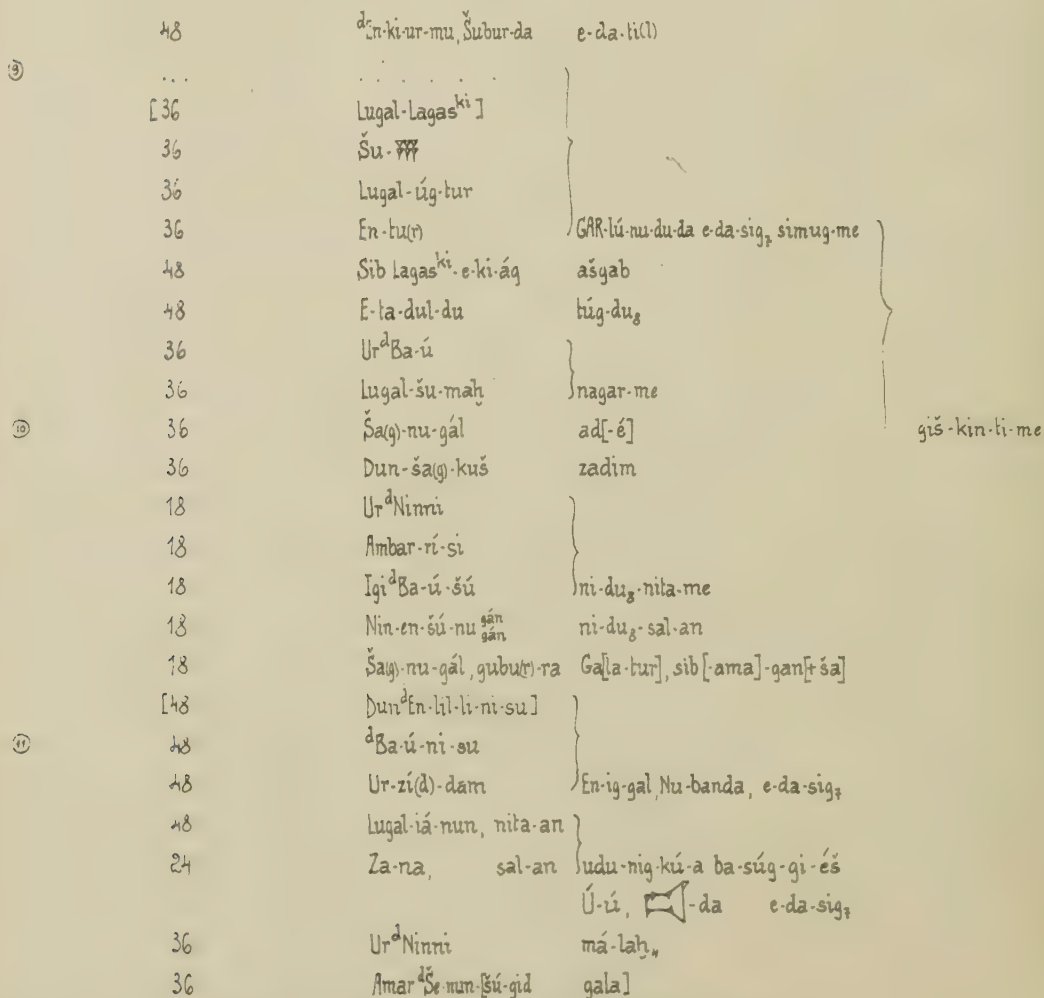 48 ᵈEn-ki-ur-mu, Šubur-da e-da-ti(l)
⑨ ... . . . . . .
[36 Lugal-Lagasᵏⁱ]
36 Šu-
36 Lugal-úg-tur
36 En-tu(r) GAR-lú-nu-du-da e-da-sig₇ simug-me
48 Sib Lagasᵏⁱ-e-ki-ág ašgab
48 E-ta-dul-du túg-du₈
36 Ur ᵈBa-ú
36 Lugal-šu-maḫ nagar-me
⑩ 36 Ša(g)-nu-gál ad[-é] giš-kin-ti-me
36 Dun-ša(g)-kuš zadim
18 Ur ᵈNinni
18 Ambar-rí-si
18 Igi ᵈBa-ú-šú ni-du₈-nita-me
18 Nin-en-šú-nu gán gán ni-du₈-sal-an
18 Ša(g)-nu-gál, gubu(r)-ra Ga[la-tur], sib[-ama]-gan[+ša]
[48 Dun ᵈEn-lil-li-ni-su]
⑪ 48 ᵈBa-ú-ni-su
48 Ur-zí(d)-dam En-ig-gal, Nu-banda, e-da-sig₇
48 Lugal-iá-nun, nita-an
24 Za-na, sal-an udu-nig-kú-a ba-súg-gi-éš
Ú-ú, -da e-da-sig₇
36 Ur ᵈNinni má-laḫ₄
36 Amar ᵈŠe-nun-[šú-gid gala]